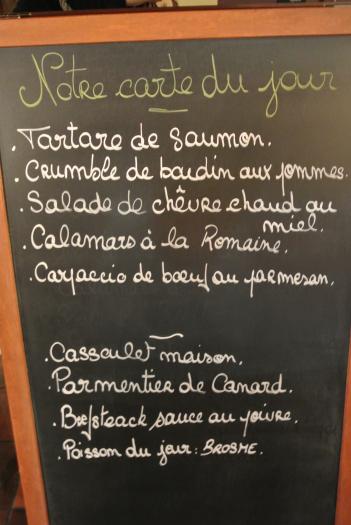 Notre carte du jour
. Tartare de Saumon.
. Crumble de boudin aux pommes.
. Salade de chêvre chaud au
miel.
. Calamars à la Romaine.
. Carpaccio de bœuf au parmesan.
. Cassoulet maison.
. Parmentier de Canard.
. Beefsteack sauce au poivre.
. Poisson du jour : BROSME.